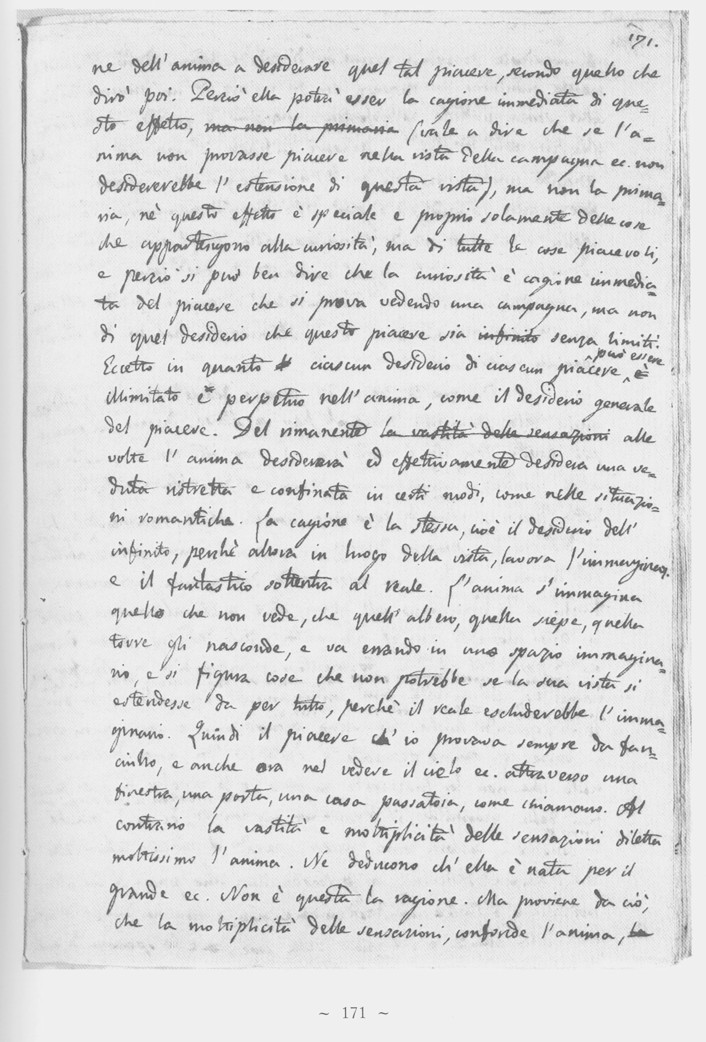 171.
ne dell'anima a desiderare quel tal piacere, secondo quello che
dirò poi. Perciò ella potrà esser la cagione immediata di que-
sto effetto, ma non la primaria (vale a dire che se l'a-
nima non provasse piacere nella vista della campagna ec. non
desidererebbe l'estensione di questa vista), ma non la prima-
ria, nè questo effetto è speciale e proprio solamente delle cose
che appartengono alla curiosità, ma di tutte le cose piacevoli,
e perciò si può ben dire che la curiosità è cagione immedia-
ta del piacere che si prova vedendo una campagna, ma non
di quel desiderio che questo piacere sia infinito senza limiti.
Eccetto in quanto ciascun desiderio di ciascun piacere può essere è
illimitato e perpetuo nell'anima, come il desiderio generale
del piacere. Del rimanente la vastità delle sensazioni alle
volte l'anima desidererà ed effettivamente desidera una ve-
duta ristretta e confinata in certi modi, come nelle situazio-
ni romantiche. La cagione è la stessa, cioè il desiderio dell'
infinito, perchè allora in luogo della vista, lavora l'immaginaz.
e il fantastico sottentra al reale. L'anima s'immagina
quello che non vede, che quell'albero, quella siepe, quella
torre gli nasconde, e va errando in uno spazio immagina-
rio, e si figura cose che non potrebbe se la sua vista si
estendesse da per tutto, perchè il reale escluderebbe l'imma-
ginario. Quindi il piacere ch'io provava sempre da fan-
ciullo, e anche ora nel vedere il cielo ec. attraverso una
finestra, una porta, una casa passatoia, come chiamano. Al
contrario la vastità e moltiplicità delle sensazioni diletta
moltissimo l'anima. Ne deducono ch'ella è nata per il
grande ec. Non è questa la ragione. Ma proviene da ciò,
che la moltiplicità delle sensazioni, confonde l'anima, la
~ 171 ~